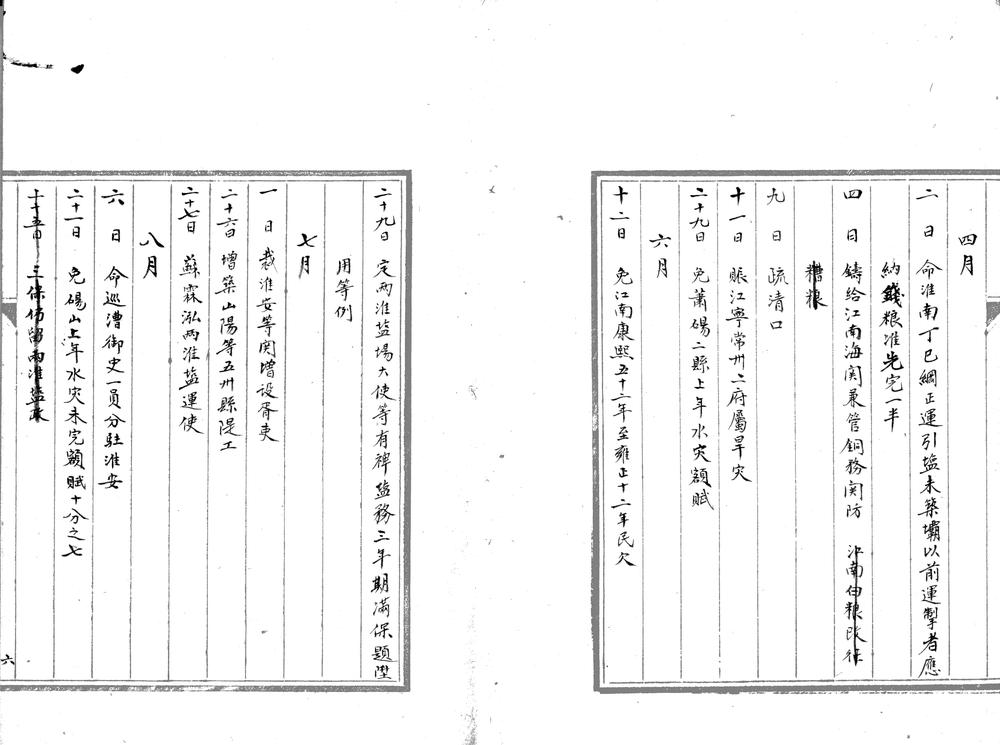 四月
二日　命淮南丁巳綱正運引塩未築壩以前運掣者應
納錢粮准先完一半
四日　鑄給江南海関兼管銅務関防　江南白粮改徵
糟粮
九日　疏清口
十一日　賑江寧常州二府屬旱灾
二十九日　免蕭碭二縣上年水灾額賦
六月
十二日　免江南康熙五十二年至雍正十二年民欠
二十九日　定兩淮盐場大使等有裨盐務三年期滿保題陞
用等例
七月
一日　裁淮安等関增设胥吏
二十六日　增築山陽等五州縣隄工
二十七日　蘇霖泓兩淮盐運使
八月
六日　命巡漕御史一員分駐淮安
二十一日　免碭山上年水灾未完額賦十分之七
二十五日　三保仍留兩淮盐政
六